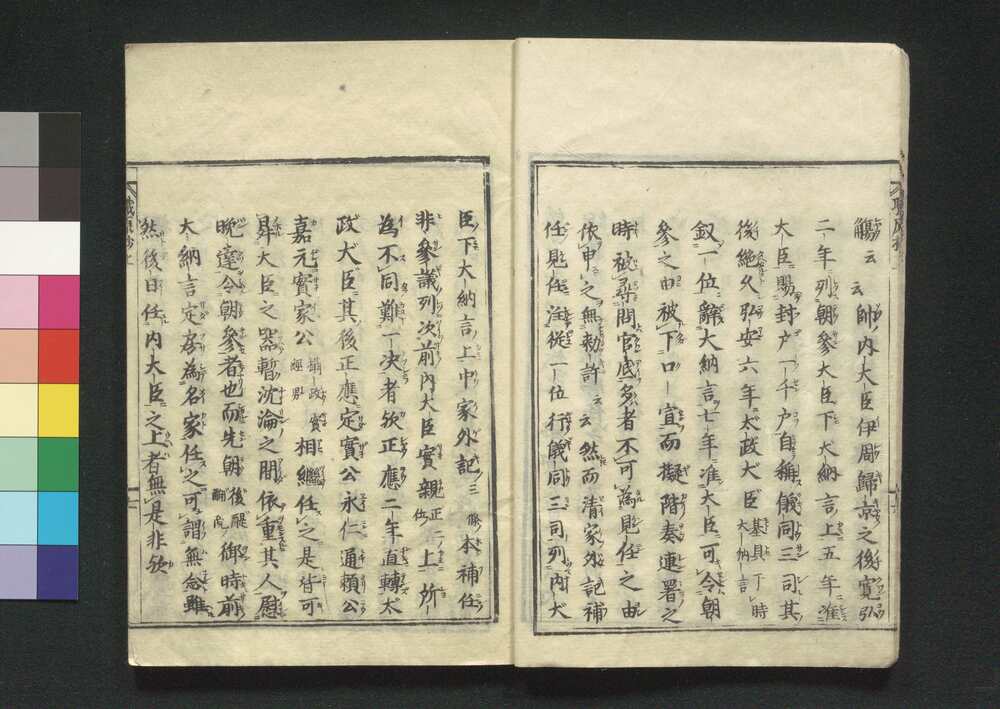 觴云云帥内大臣伊周歸京之後寛弘
二年列朝參大臣下大納言上五年准
大臣賜封戸一千戸自稱儀同三司其
後絶久弘安六年太政大臣基具于時大納言
叙一位辭大納言七年准大臣可令朝
參之由被下口宣而擬階奏連署之
時被尋問官底多者不可為見任之由
依申之無勅許云云然而清家外記補
任見任注從一位行儀同三司列内大
臣下大納言上中家外記三條本補任
非參議列次前内大臣實親正二位上所
為不同難一決者欤正應二年直轉太
政大臣其後正應定實公永仁通頼公
嘉元實家公攝政實經男相繼任之是皆可
昇大臣之器暫沈淪之間依重其人慰
晩達令朝參者也而先朝後醍醐院御時前
大納言定房為名家任之可謂無念雖
然後日任内大臣之上者無是非欤
職原抄上